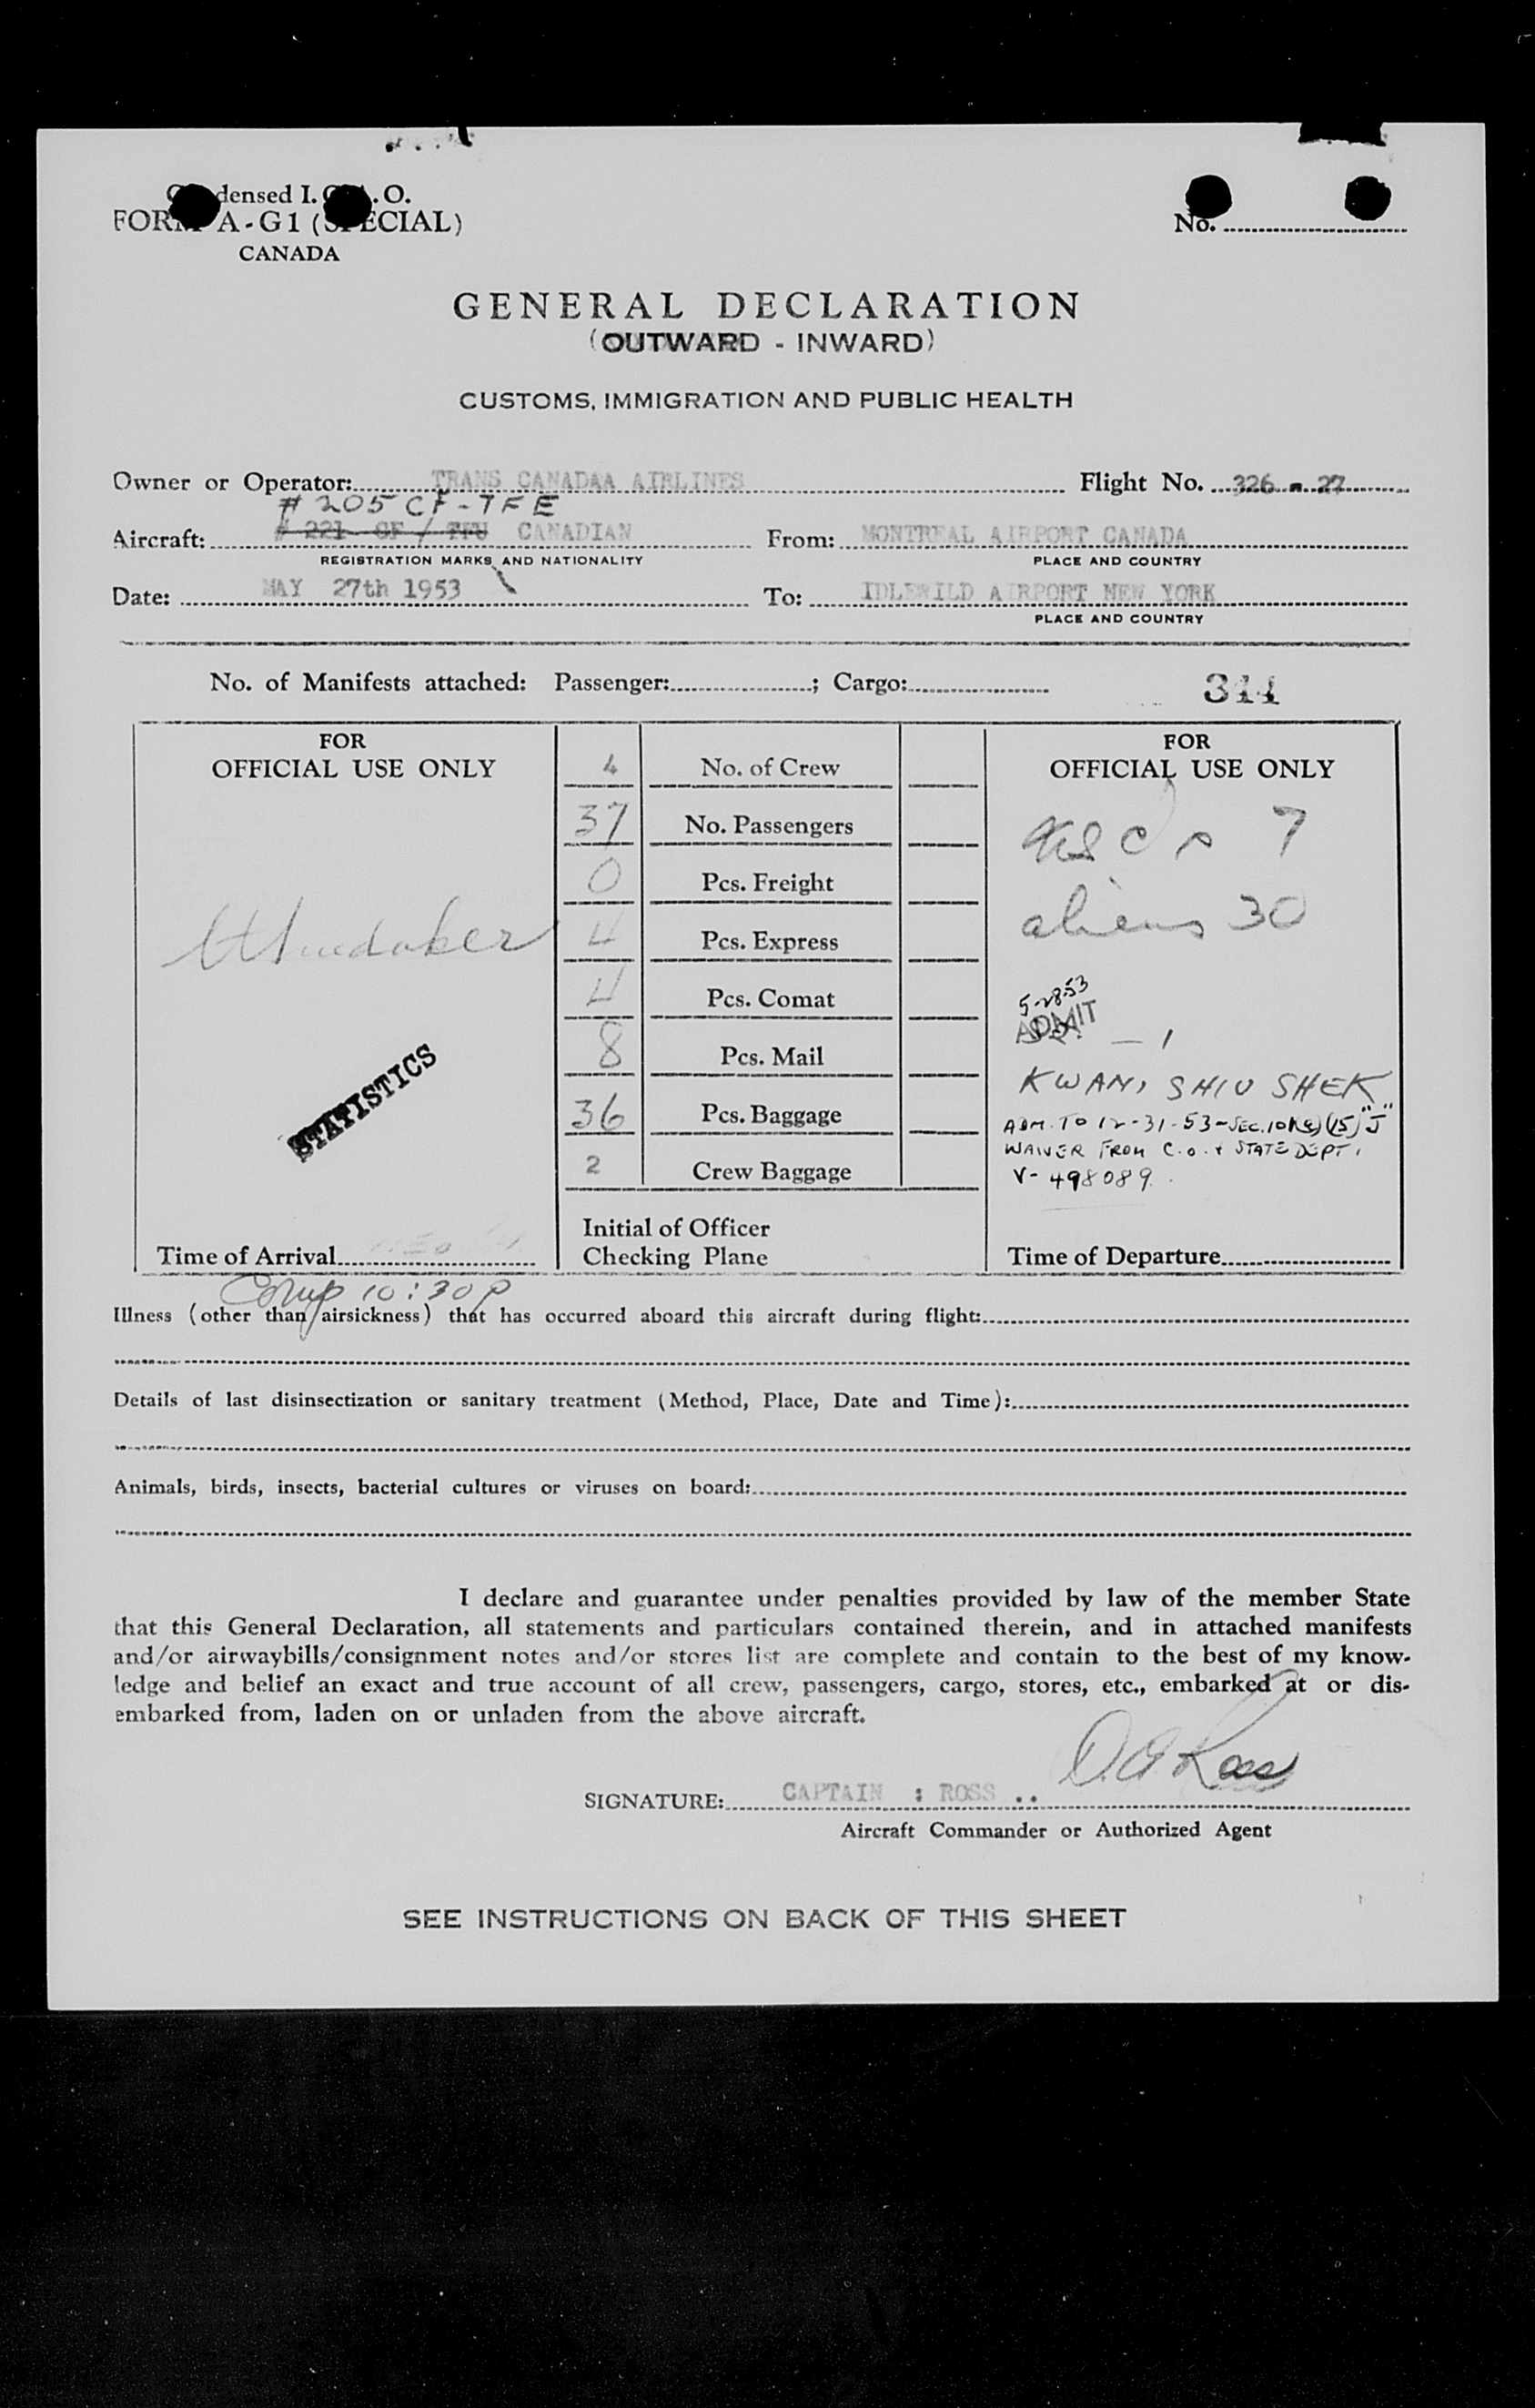 densed I. . O.
FORM A-G1 (SPECIAL)
CANADA
No.
GENERAL DECLARATION
(OUTWARD - INWARD)
CUSTOMS, IMMIGRATION AND PUBLIC HEALTH
Owner or Operator: TRANS CANADAA AIRLINES Flight No. 326 - 27
# 205 CF-TFE
Aircraft: # 221 CF / TFU CANADIAN From: MONTREAL AIRPORT CANADA
REGISTRATION MARKS AND NATIONALITY PLACE AND COUNTRY
Date: MAY 27th 1953 To: IDLEWILD AIRPORT NEW YORK
PLACE AND COUNTRY
No. of Manifests attached: Passenger: ; Cargo: 344
FOR
OFFICIAL USE ONLY
STATISTICS
Time of Arrival
Comp 10:30 P
4 No. of Crew
37 No. Passengers
0 Pcs. Freight
4 Pcs. Express
4 Pcs. Comat
8 Pcs. Mail
36 Pcs. Baggage
2 Crew Baggage
Initial of Officer
Checking Plane
FOR
OFFICIAL USE ONLY
7
aliens 30
5-28-53
ADMIT — 1
KWAN, SHIU SHEK
ADM. TO 12-31-53-SEC.101(a)(15)"J"
WAIVER FROM C.O. + STATE DEPT.
V- 498089.
Time of Departure
Illness (other than airsickness) that has occurred aboard this aircraft during flight:
Details of last disinsectization or sanitary treatment (Method, Place, Date and Time):
Animals, birds, insects, bacterial cultures or viruses on board:
I declare and guarantee under penalties provided by law of the member State
that this General Declaration, all statements and particulars contained therein, and in attached manifests
and/or airwaybills/consignment notes and/or stores list are complete and contain to the best of my know-
ledge and belief an exact and true account of all crew, passengers, cargo, stores, etc., embarked at or dis-
embarked from, laden on or unladen from the above aircraft.
SIGNATURE: CAPTAIN : ROSS .. D.A Ross
Aircraft Commander or Authorized Agent
SEE INSTRUCTIONS ON BACK OF THIS SHEET